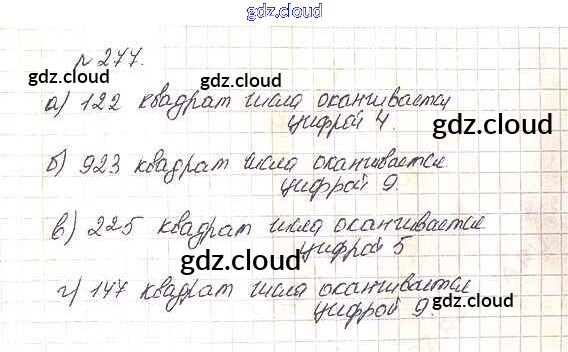 gdz.cloud
№ 277.
gdz.cloud
gdz.cloud
а) 122 квадрат числа оканчивается
цифрой 4.
gdz.cloud
б) 923 квадрат числа оканчивается
цифрой 9.
в) 225 квадрат числа оканчивается
цифрой 5
gdz.cloud
г) 147 квадрат числа оканчивается
цифрой 9.
gdz.cloud
gdz.cloud